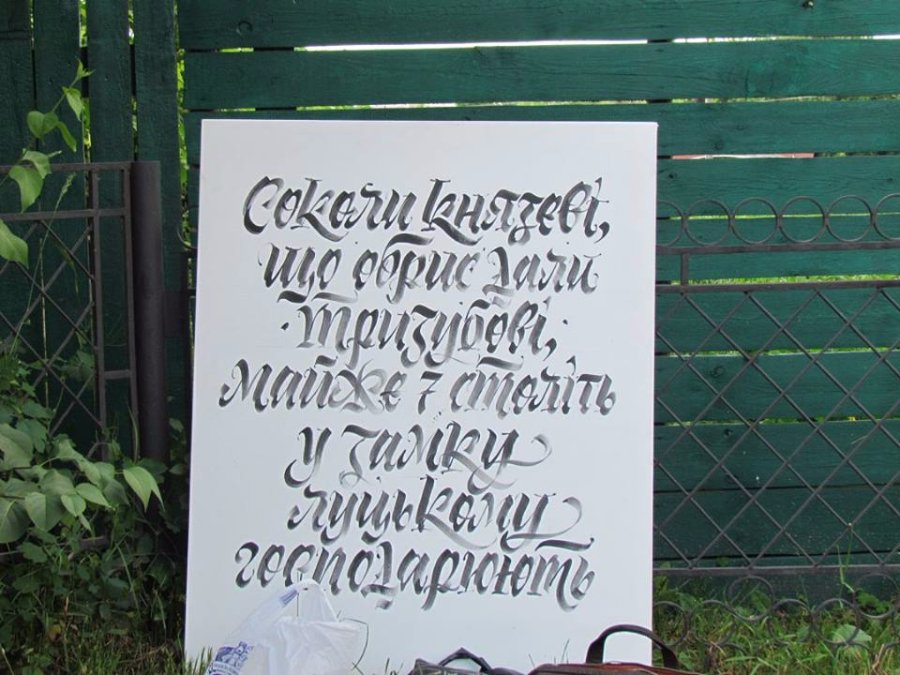 Соколи князеві,
що обрис дали
тризубові;
майже 7 століть
у замку
луцькому
господарюють